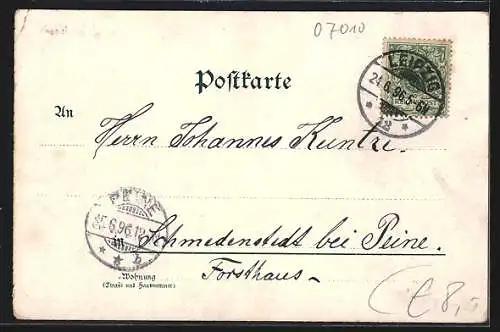 07010
LEIPZIG
24.6.96.5-6N
* 12 *
Postkarte
An
Herrn Johannes Kuntze.
PEINE
25.6.96.12
Schmedenstedt bei Peine.
Forsthaus
Wohnung
(Straße und Hausnummer)
€ 8,-